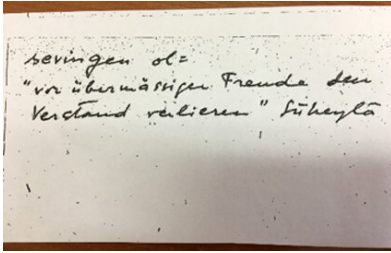 sevingen ol=
"vor übermässiger Freude den
Verstand verlieren" Süheylâ